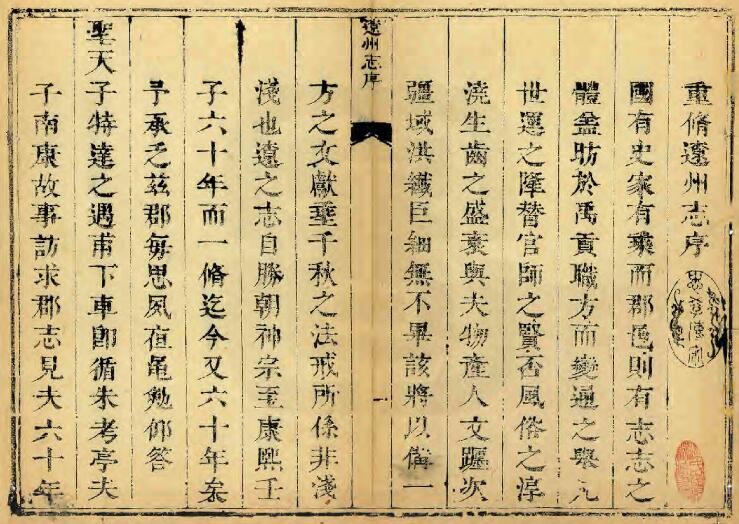 重脩遼州志序
國有史家有乗而郡邑則有志志之
體葢昉於禹貢職方而變通之舉凡
世運之隆替官師之賢否風俗之淳
澆生齒之盛衰與夫物產人文躔次
疆域洪纖巨細無不畢該將以備一
遼州志序
方之文獻垂千秋之法戒所係非淺
淺也遼之志自勝朝神宗至康熙壬
子六十年而一脩迄今又六十年矣
予承乏茲郡每思夙夜黽勉仰答
聖天子特達之遇甫下車卽循朱考亭夫
子南康故事訪求郡志見夫六十年